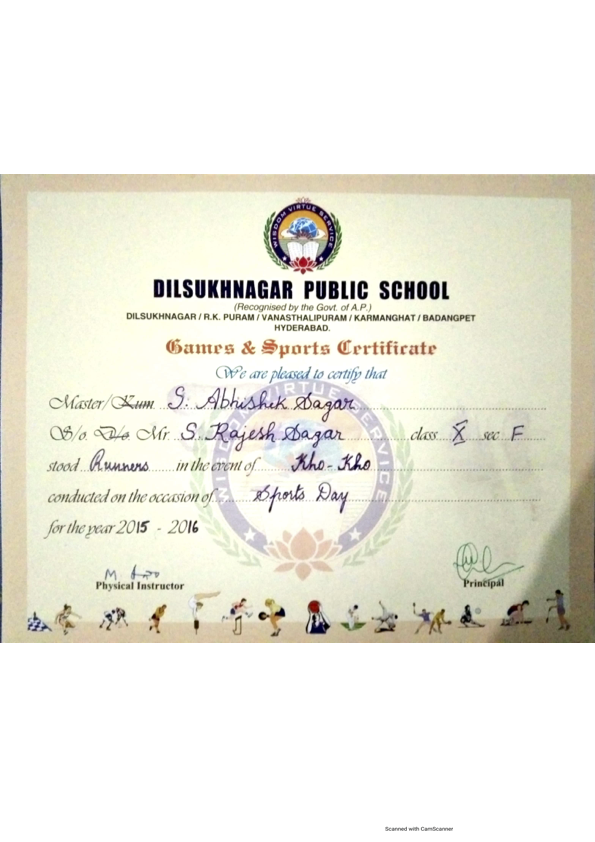 WISDOM VIRTUE SERVICE
DILSUKHNAGAR PUBLIC SCHOOL
(Recognised by the Govt. of A.P.)
DILSUKHNAGAR / R.K. PURAM / VANASTHALIPURAM / KARMANGHAT / BADANGPET
HYDERABAD.
Games & Sports Certificate
We are pleased to certify that
Master/Kum S. Abhishek Sagar
S/o. D/o. Mr. S. Rajesh Sagar class X sec F
stood Runners in the event of Kho-Kho
conducted on the occasion of Sports Day
for the year 2015 - 2016
Physical Instructor Principal
Scanned with CamScanner